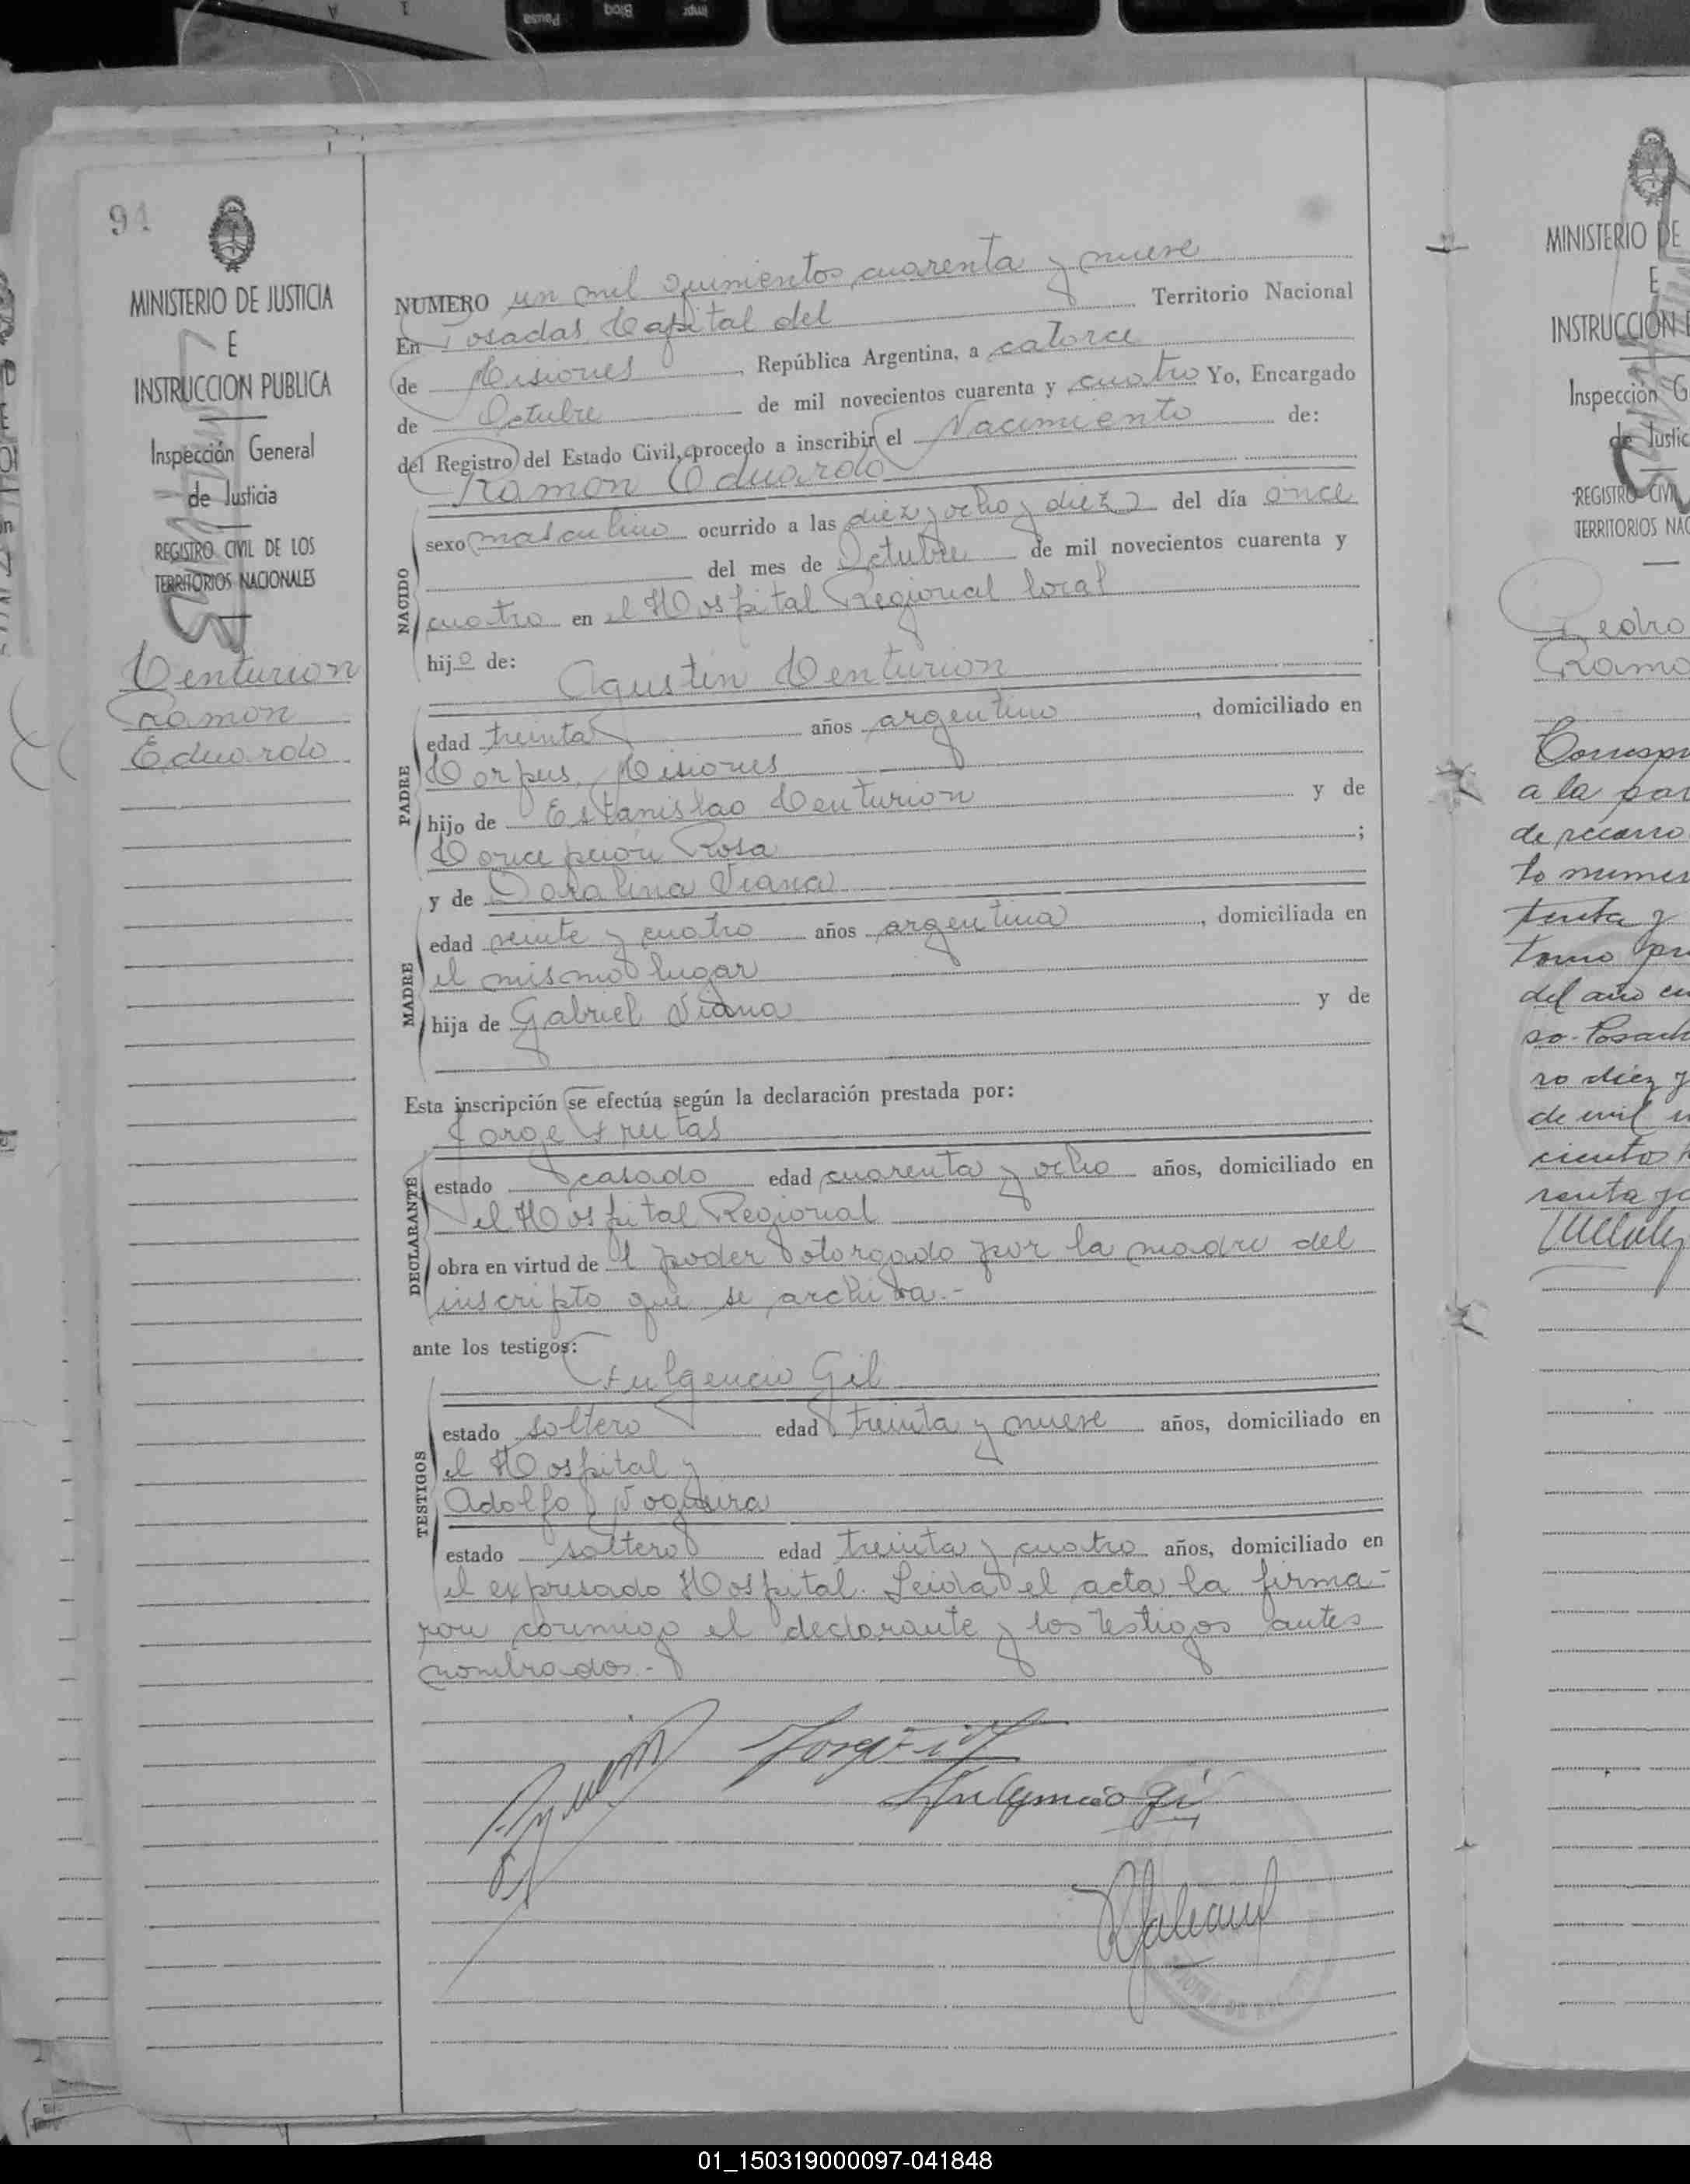 Pausa
94
MINISTERIO DE JUSTICIA
E
INSTRUCCION PUBLICA
Inspección General
de Justicia
REGISTRO CIVIL DE LOS
TERRITORIOS NACIONALES
Centurion
Ramon
Eduardo
NUMERO un mil quinientos cuarenta y nueve
En Posadas Capital del Territorio Nacional
de Misiones, República Argentina, a catorce
de Octubre de mil novecientos cuarenta y cuatro Yo, Encargado
del Registro del Estado Civil, procedo a inscribir el Nacimiento de:
Ramon Eduardo
NACIDO
sexo masculino ocurrido a las diez y ocho y diez del día once
del mes de Octubre de mil novecientos cuarenta y
cuatro en el Hospital Regional local
hijo de:
Agustin Centurion
PADRE
edad treinta años argentino, domiciliado en
Corpus, Misiones
hijo de Estanislao Centurion y de
Concepción Rosa;
y de Doralina Viana
MADRE
edad veinte y cuatro años argentina, domiciliada en
el mismo lugar
hija de Gabriel Viana y de
Esta inscripción se efectúa según la declaración prestada por:
Jorge Frutas
DECLARANTE
estado casado edad cuarenta y ocho años, domiciliado en
el Hospital Regional
obra en virtud del poder otorgado por la madre del
inscripto que se archiva.-
ante los testigos:
Fulgencio Gil
TESTIGOS
estado soltero edad treinta y nueve años, domiciliado en
el Hospital y
Adolfo
estado soltero edad treinta y cuatro años, domiciliado en
el expresado Hospital. Leida el acta la firma-
ron conmigo el declarante y los testigos antes
nombrados.-
Fulgencio Gil
MINISTERIO DE
E
INSTRUCCION
Inspección G
de Justic
REGISTRO CIVIL
TERRITORIOS NAC
Pedro
Ramo
Corresp
a la par
de
to numer
tenta y
tomo pr
del año cu
so-Posad
ro diez y
de mil n
cientos
renta y
01_150319000097-041848